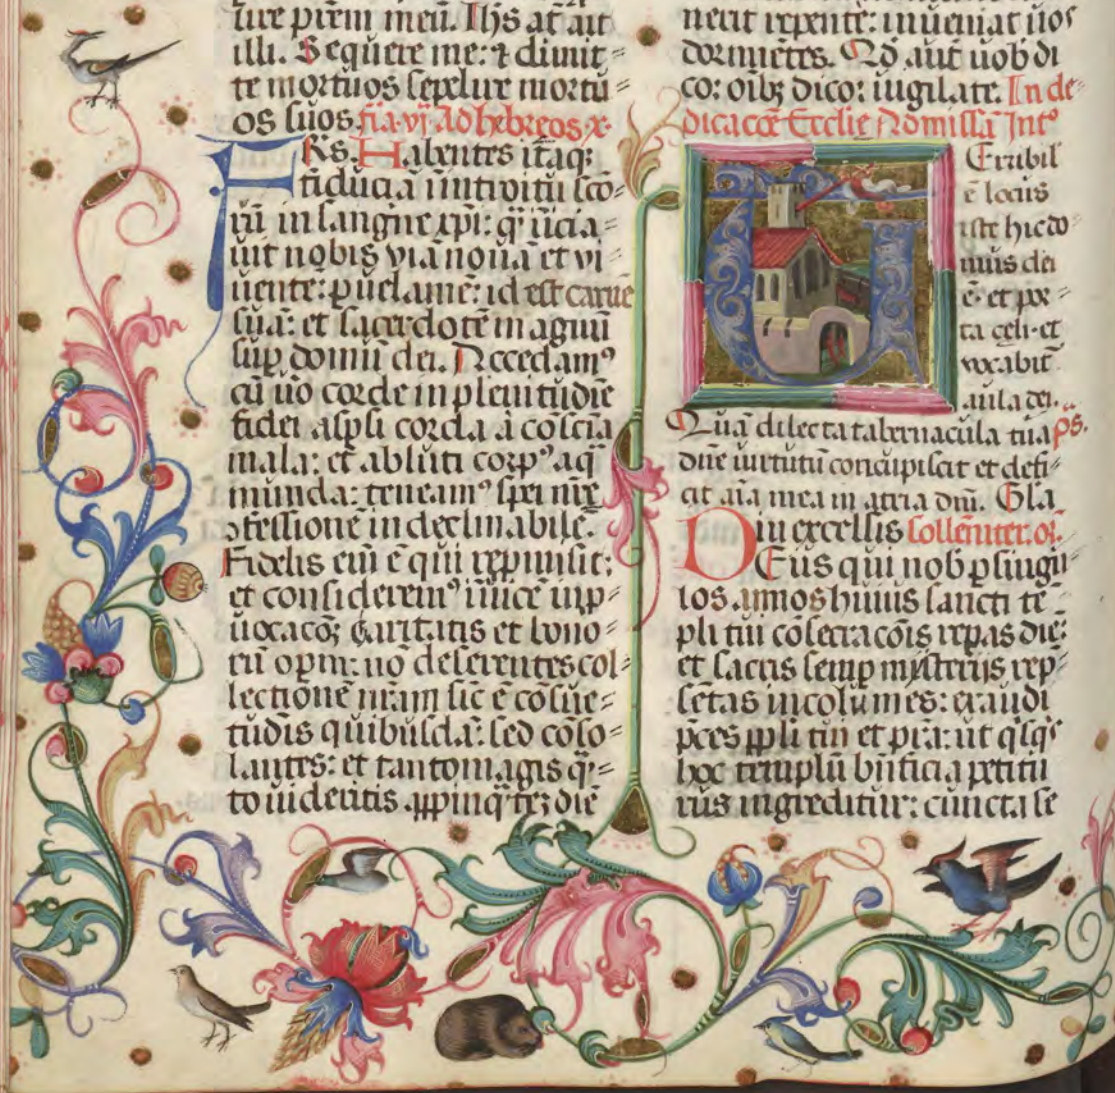 lire p̄rem meū. Ih̄s at̄ ait
illi. Sequere me: ⁊ dimit⸗
te mortuos sepelire mortu⸗
os suos. fīa·vj Ad hebreos·x·
FRs. Habentes itaq:
fiduciā ī introitu scō⸗
rū in sangīne xp̄i: q̄ īicia⸗
uit nobis viā nouā et vi⸗
uentē: p uelamē: id est carnē
suā: et sacerdotē magnū
sup domū dei. Accedam⁹
cū ūo corde in plenitudīe
fidei aspsi corda a cōscīa
mala: et abluti corp⁹ aq̄
munda: teneam⁹ spei nr̄e
ɔfessionē indeclinabilē.
Fidelis eni ē qui repmisit:
et considerem⁹ iūicē in p
uocacōꝫ caritatis et bono⸗
rū opm: nō deserentes col⸗
lectionē nr̄am sic ē cōsue⸗
tudīs quibusdā: sed cōso⸗
lantes: et tanto magis q̄⸗
to uideritis appinq̄teꝫ diē
nerit repente: inueniat uos
dormiētes. Qđ aut uob di
co: oībꝫ dico: uigilate. In de⸗
dicacōe Ecclīe Ad missā Int⁰
TErribil
ē locus
iste hic do⸗
mus dei
ē· et por⸗
ta celi· et
vocabit̄
aula dei.
Quā dilecta tabernacula tua ps.
dn̄e uirtutū concupiscit et defi⸗
cit aīa mea in atria dn̄i. Gla
in excelsis sollēniter. or.
DEus qui nob p singu⸗
los annos huius sancti tē⸗
pli tui cōsecracōis repas diē:
et sacris semp misterijs rep⸗
sētas incolumes: exaudi
p̄ces ppli tui et p̄ra: ut q̄sq̄s
hoc templū bn̄ficia petitu
rus ingreditur: cuncta se